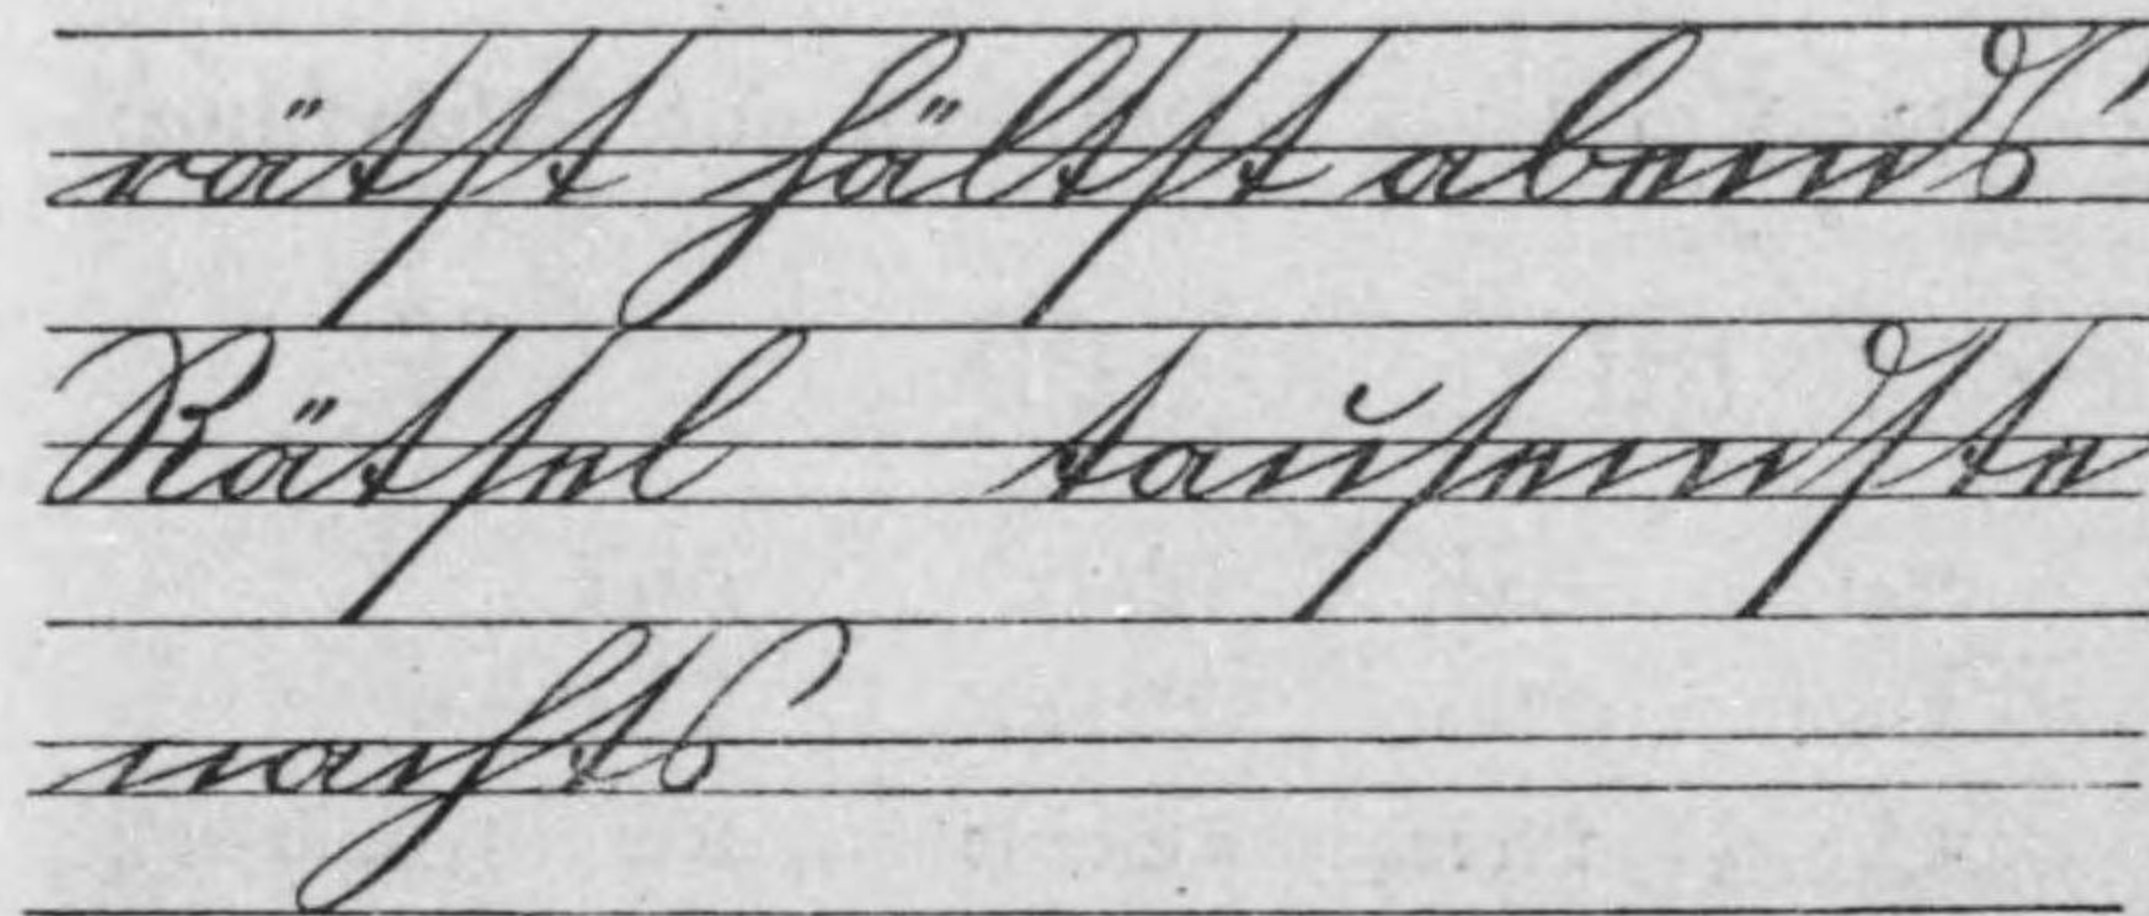 rätst hältst abends
Rätsel tausendste
nachts